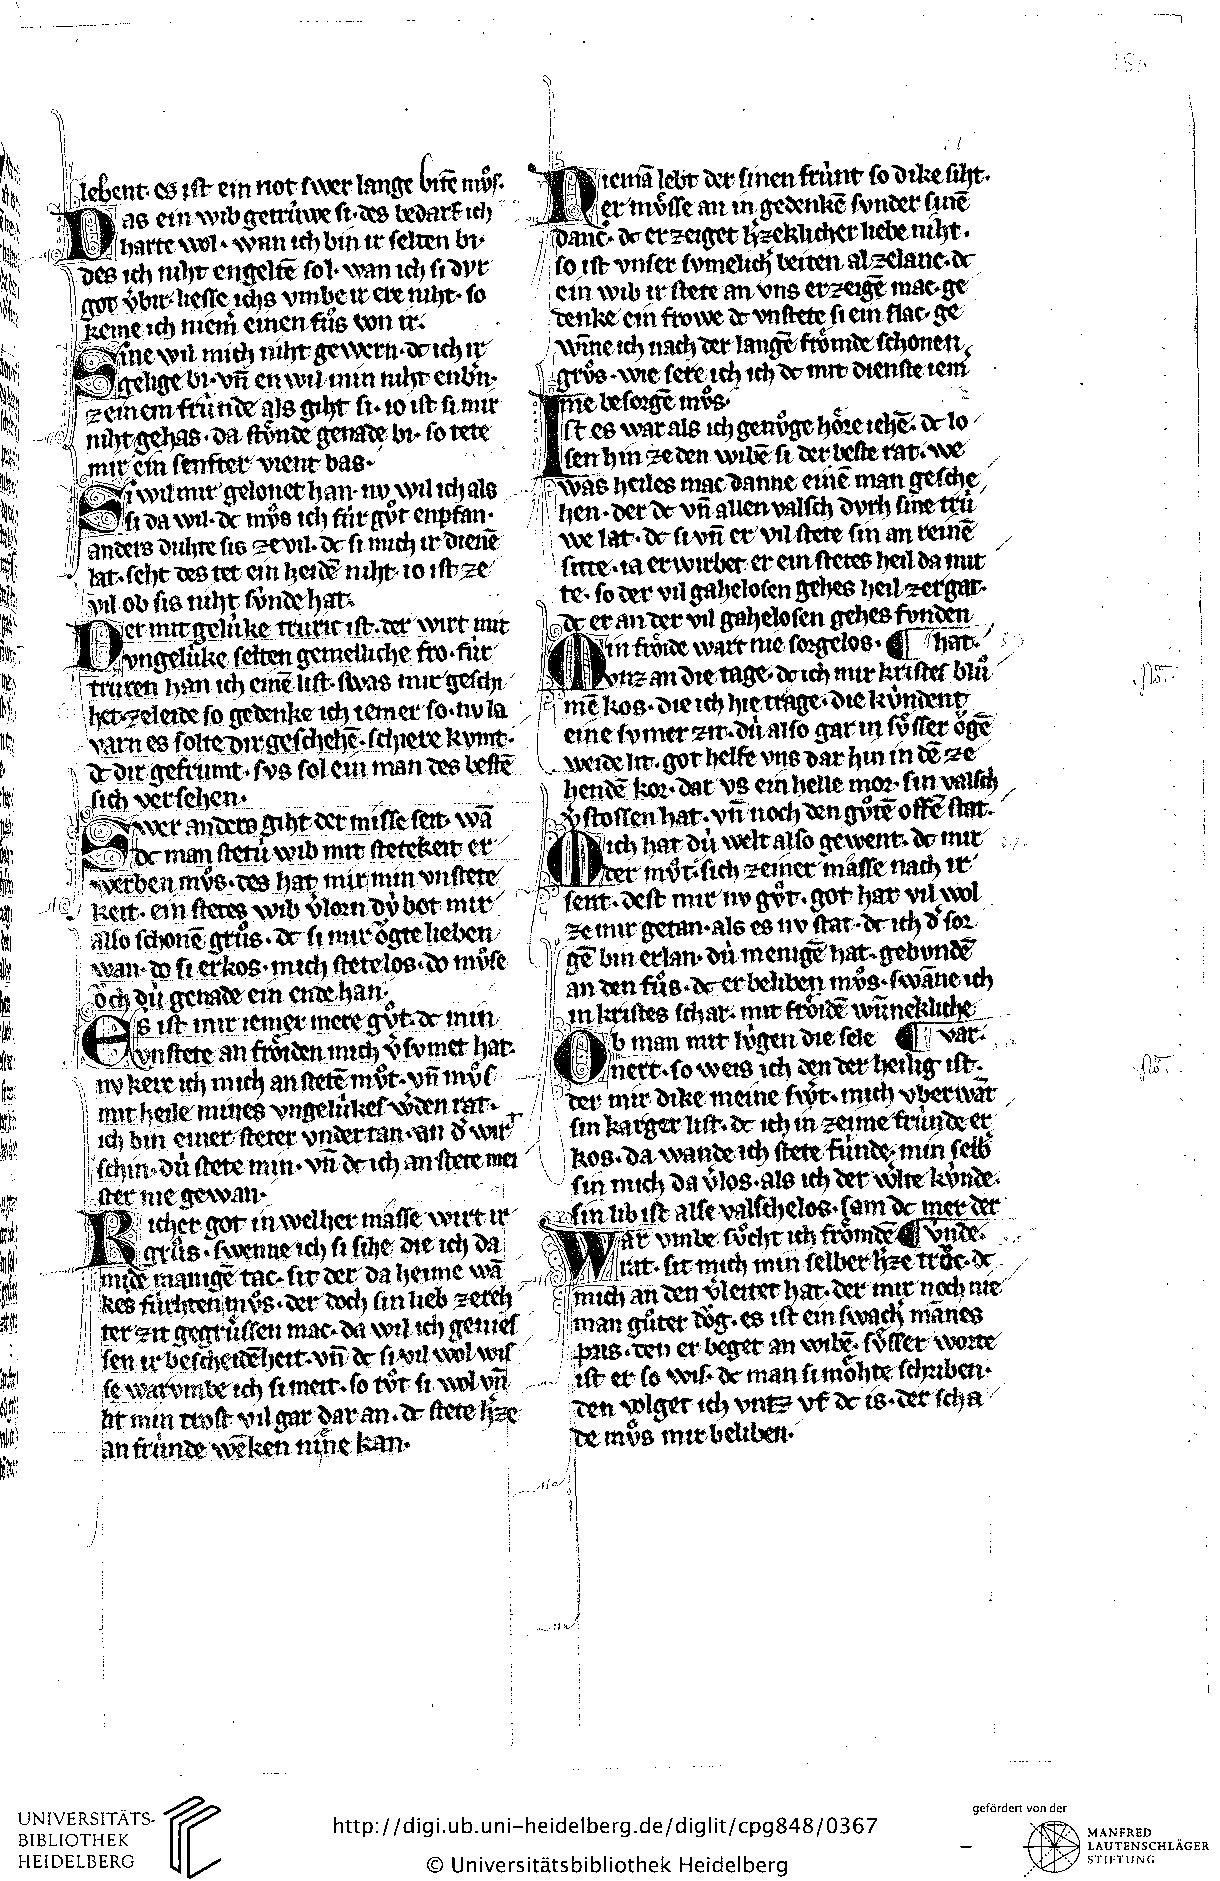 lebent· es ist ein not swer lange bittē můs·
Das ein wib getrúwe si· des bedarf ich
harte wol· wan ich bin ir selten bi·
des ich niht engeltē sol· wan ich si dvr
got v̓bir· liesse ichs vmbe ir ere niht· so
keme ich niem̄ einen fůs von ir·
Sine wil mich niht gewern· dc ich ir
gelige bi· vn̄ en wil min niht enbn̄·
zeinem frúnde als giht si· io ist si mir
niht gehas· da stv̊nde genade bi· so tete
mir ein senfter vient bas·
Si wil mir gelonet han· nv wil ich als
si da wil· dc mv̊s ich fúr gv̊t enpfan·
anders duhte sis ze vil· dc si mich ir dienē
lat· seht des tet ein heidē niht· io ist ze
vil ob sis niht súnde hat·
Der mit gelúke truric ist· der wirt mit
vngelúke selten gemelliche fro· fúr
truren han ich einē list· swas mir geschi
het· zeleide so gedenke ich iemer so· nv la
varn es solte dir geschehē· schiere kvmt·
dc dir gefrumt· svs sol ein man des bestē
sich versehen·
Swer anders giht der misse seit· wā
dc man stetú wib mit stetekeit er
werben mv̊s· des hat mir min vnstete
keit· ein stetes wib v̓lorn dv̓ bot mir
also schonē grůs· dc si mir ǒgte lieben
wan· do si erkos· mich stetelos· do mv̊se
ǒch dú genade ein ende han·
Es ist mir iemer mere gv̊t· dc min
vnstete an frǒiden mich v̓svmet hat·
nv kere ich mich an stetē mv̊t· vn̄ mv̊s
mit heile mines vngelúkes w̓den rat·
ich bin einer steter vndertan· an d̓ wirt
schin· dú stete min· vn̄ dc ich an stete mei
ster nie gewan·
Richer got in welher masse wirt ir
grůs· swenne ich si sihe die ich da
mide manigē tac· sit der da heime wā
kes fúrhten mv̊s· der doch sin lieb zereh
ter zit gegrússen mac· da wil ich genies
sen ir bescheidēheit· vn̄ dc si vil wol wis
se warvmbe ich si meit· so tv̊t si wol vn̄
lit min trost vil gar dar an· dc stete h̓ze
an frúnde wēken nin̄e kan·
Niemā lebt der sinen frúnt so dike siht·
er mv̊sse an in gedenkē svnder sinē
danc· dc erzeiget h̓zeklicher liebe niht·
so ist vnser svmelich beiten al zelanc· dc
ein wib ir stete an vns erzeigē mac· ge
denke ein frowe dc vnstete si ein slac· ge
win̄e ich nach der langē frǒmde schonen
grůs· wie sere ich ich dc mit dienste iem̄
me besorgē mv̊s·
Ist es war als ich genv̊ge hǒre iehē· dc lo
sen hin ze den wibē si der beste rat· we
was heiles mac danne einē man gesche
hen· der dc vn̄ allen valsch dvrh sine trú
we lat· dc si vn̄ er vil stete sin an reinē
sitte· ia erwirbet er ein stetes heil da mit
te· so der vil gahelosen gehes heil zergat·
dc er an der vil gahelosen gehes funden
Min frǒide wart nie sorgelos· ¶ hat·
vnz an die tage· dc ich mir kristes blů
mē kos· die ich hie trage· die kúndent
eine svmer zit· dú also gar in sv̊sser ǒgē
weide lit· got helfe vns dar hin in dē ze
hendē kor· dar vs ein helle mor· sin valsch
v̓stossen hat· vn̄ noch den gv̊tē offē stat·
Mich hat dú welt also gewent· dc mir
der mv̊t· sich zeiner masse nach ir
sent· dest mir nv gv̊t· got hat vil wol
ze mir getan· als es nv stat· dc ich d̓ sor
gē bin erlan· dú menigē hat· gebvndē
an den fůs· dc er beliben mv̊s· swan̄e ich
in kristes schar· mit frǒidē wun̄ekliche
Ob man mit lúgen die sele ¶ var·
nert· so weis ich den der heilig ist·
der mir dike meine swr̊t· mich vberwāt
sin karger list· dc ich in zeime frúnde er
kos· da wande ich stete fúnde· min selb
sin mich da v̓los· als ich der wlte kúnde·
sin lib ist alse valschelos· sam dc mer der
War vmbe sv̊cht ich frǒmdē ¶ vnde·
rat· sit mich min selber h̓ze trǒc· dc
mich an den v̓leitet hat· der mir noch nie
man gůter dǒg· es ist ein swach man̄es
pris· den er beget an wibē· sv̊sser worte
ist er so wis· dc man si mǒhte schriben·
den volget ich vntz vf dc is· der scha
de mv̊s mir beliben·
UNIVERSITÄTS-
BIBLIOTHEK
HEIDELBERG
http://digi.ub.uni-heidelberg.de/diglit/cpg848/0367
© Universitätsbibliothek Heidelberg
gefördert von der
MANFRED
LAUTENSCHLÄGER
STIFTUNG